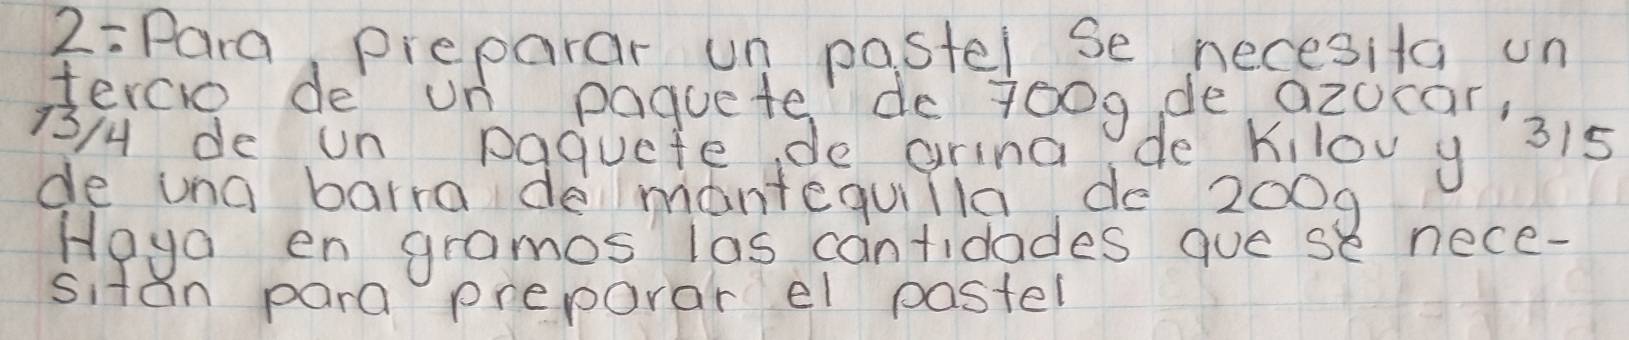 2= Para preparar un pastel se necesita un
tercio de un paquete de 700g de azucar,
3/4 de un paquete de arina de Kilo y 3/5
de una barra de mantequilla de 200g
Haya en gramos las cantidades que se nece-
sitan para preparar el pastel